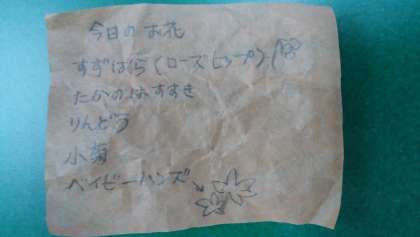 今日の お花
すずばら(ローズヒップ)
たかのはすすき
りんどう
小菊
ベイビーハンズ